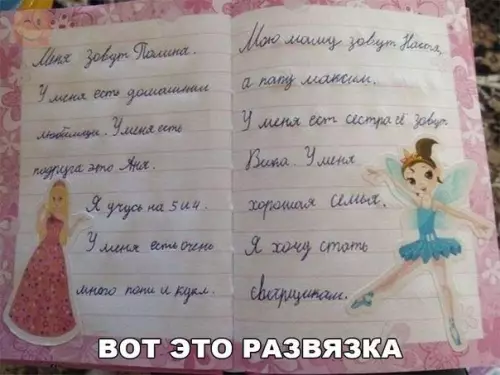 Меня зовут Полина.
У меня есть домашнии
любимици. У меня есть
подруга это Аня.
Я учусь на 5 и 4.
У меня есть очень
много пони и кукл.
Мою маму зовут Настя,
а папу максим.
У меня ест сестра её зовут
Вика. У меня
хорошая семья.
Я хочу стать
сварщиком.
ВОТ ЭТО РАЗВЯЗКА